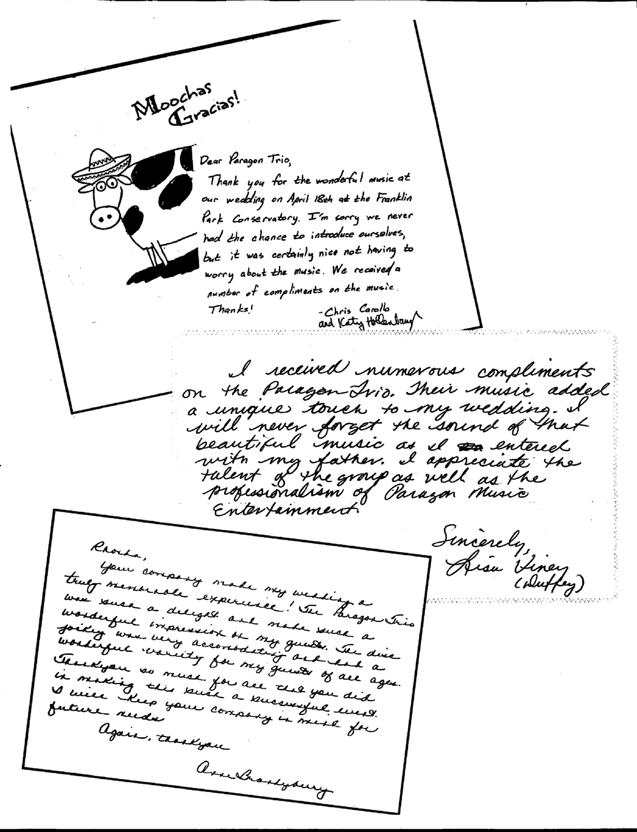 Moochas
Gracias!
Dear Paragon Trio,
Thank you for the wonderful music at
our wedding on April 18th at the Franklin
Park Conservatory. I'm sorry we never
had the chance to introduce ourselves,
but it was certainly nice not having to
worry about the music. We received a
number of compliments on the music.
Thanks!
- Chris Carollo
and Katy Hollenbaugh
I received numerous compliments
on the Paragon Trio. Their music added
a unique touch to my wedding. I
will never forget the sound of that
beautiful music as I entered
with my father. I appreciate the
talent of the group as well as the
professionalism of Paragon Music
Entertainment.
Sincerely,
Lisa Viney
(Duffey)
Your company made my wedding a
truly memorable experience! The Paragon Trio
was such a delight and made such a
wonderful impression on my guests. The disc
jockey was very accomodating and had a
wonderful variety for my guests of all ages.
Thankyou so much for all that you did
in making this such a successful event.
I will keep your company in mind for
future needs
Again, thankyou
Anne